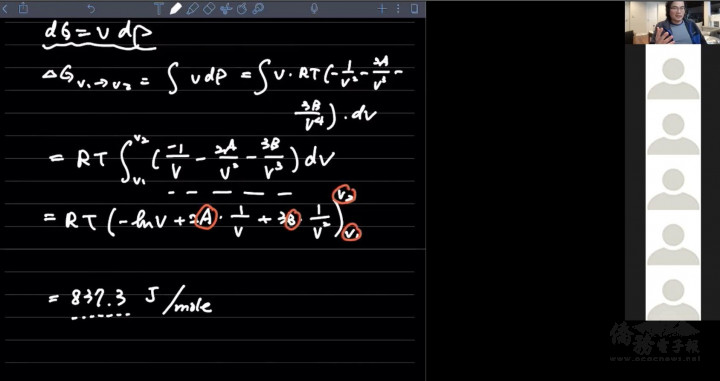 dG = v dp
ΔG v₁→v₂ = ∫ v dp = ∫ v · RT(-1/v² - 2A/v³ -
3B/v⁴) · dv
= RT ∫v₁^v₂ (-1/v - 2A/v² - 3B/v³) dv
= RT (-lnv + 2A · 1/v + 3B · 1/v²) v₂ v₁
= 837.3 J/mole
僑務電子報
www.ocacnews.net